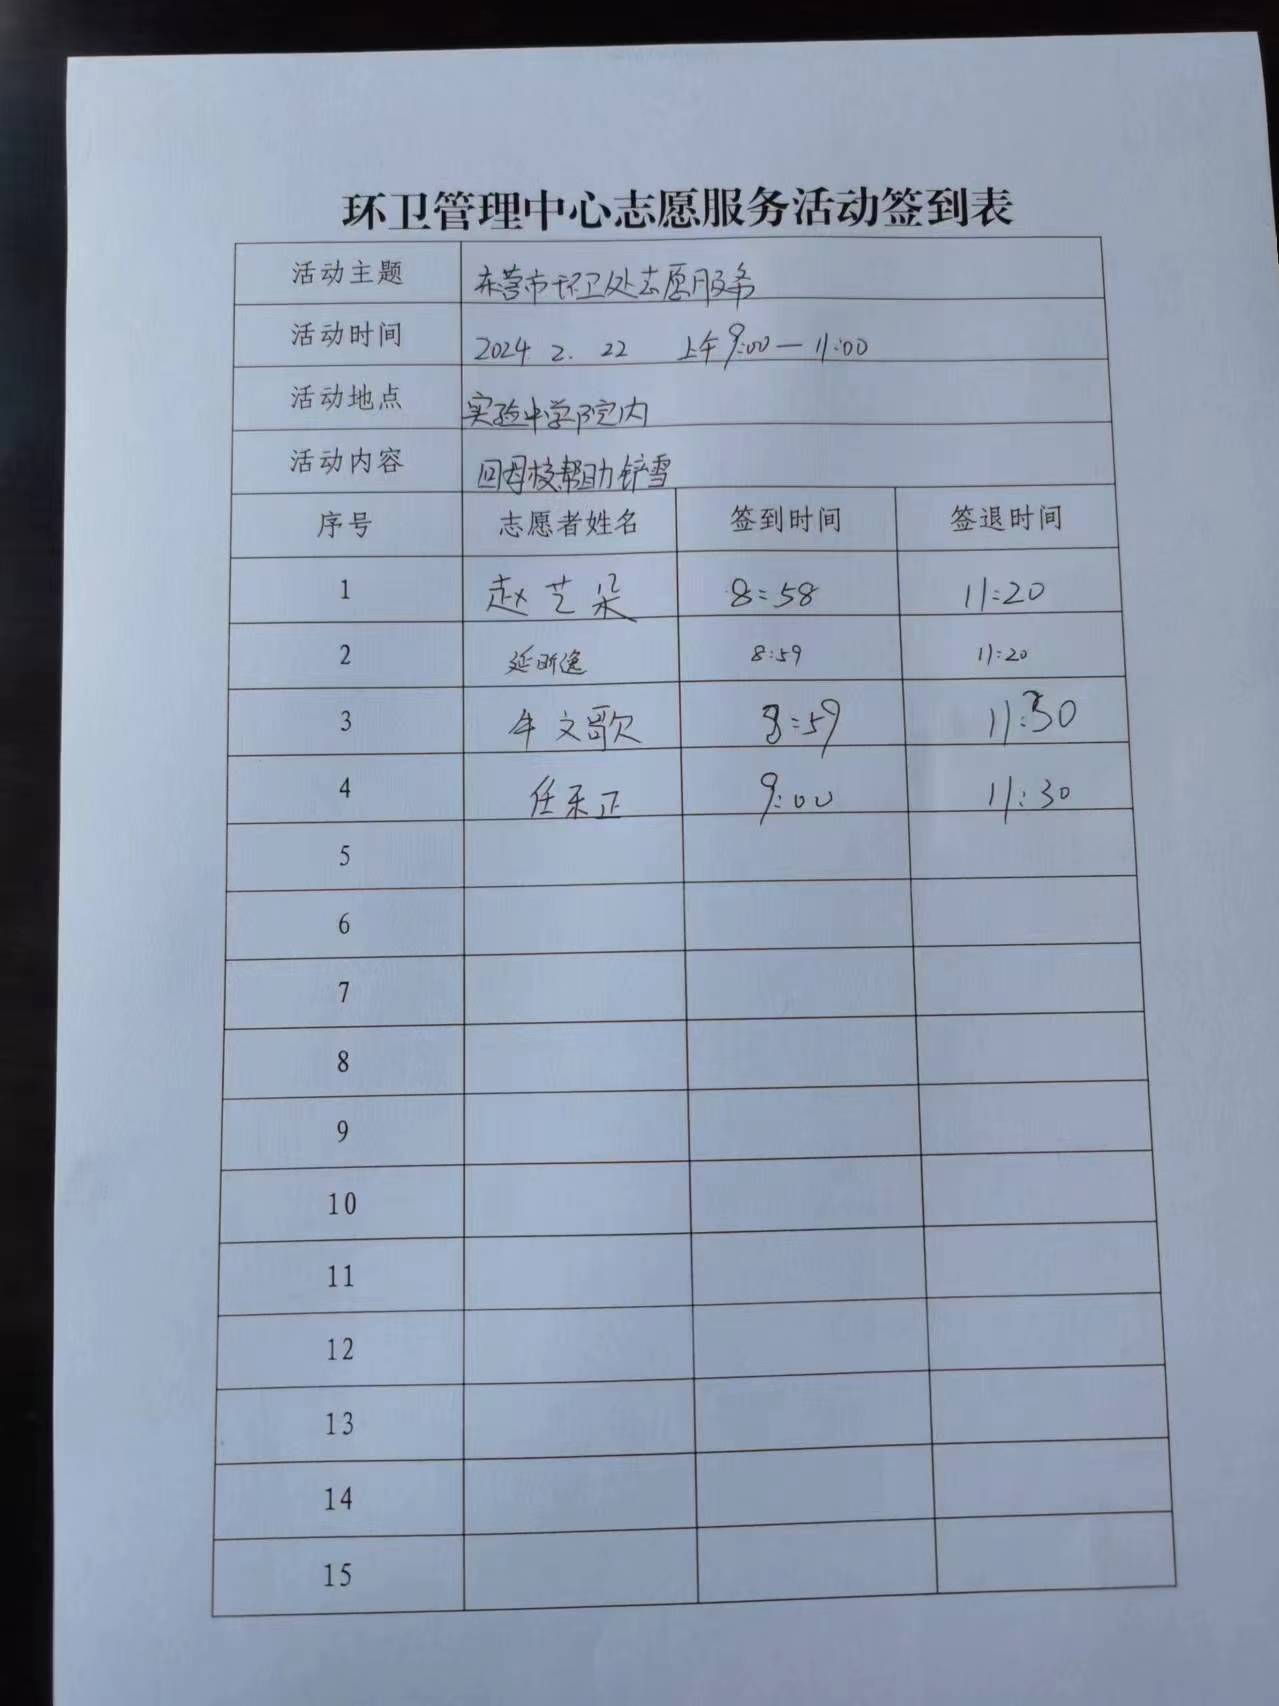 环卫管理中心志愿服务活动签到表
活动主题 东营市环卫处志愿服务
活动时间 2024.2.22 上午9:00—11:00
活动地点 实验中学院内
活动内容 回母校帮助铲雪
序号 志愿者姓名 签到时间 签退时间
1 赵艺朵 8:58 11:20
2 延昕逸 8:59 11:20
3 牛文歌 8:59 11:30
4 任柔正 9:00 11:30
5
6
7
8
9
10
11
12
13
14
15